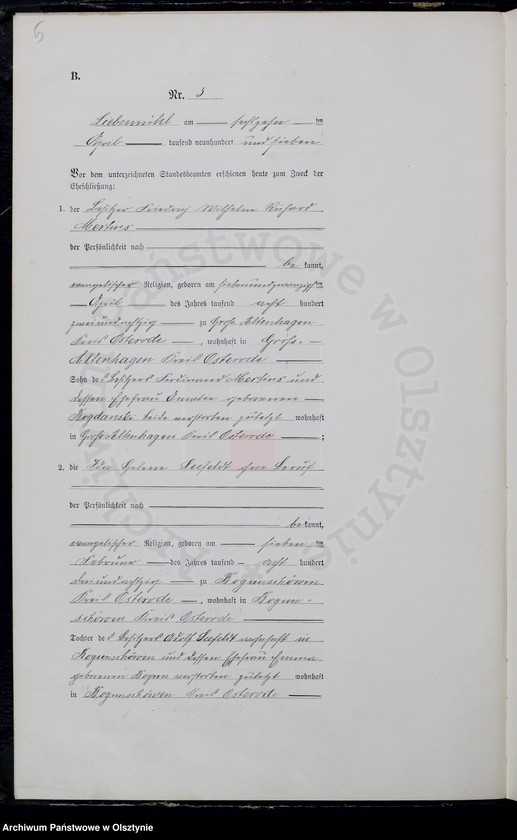 5
B.
Nr. 3
Liebemühl am sechzehn ten
April tausend neunhundert und sieben
Vor dem unterzeichneten Standesbeamten erschienen heute zum Zweck der
Eheschließung:
1. der Besitzer Friedrich Wilhelm Richard
Mertins
der Persönlichkeit nach
be kannt,
evangelischer Religion, geboren am siebenundzwanzigsten
April des Jahres tausend acht hundert
zweiundachtzig zu Groß Altenhagen
Kreis Osterode , wohnhaft in Groß-
Altenhagen Kreis Osterode
Sohn des Besitzers Ferdinand Mertins und
dessen Ehefrau Amalie geborenen
beide verstorben zuletzt wohnhaft
in Groß Altenhagen Kreis Osterode ;
2. die Helene Seefeldt ohne Beruf
der Persönlichkeit nach
be kannt,
evangelischer Religion, geboren am sieben ten
Februar des Jahres tausend acht hundert
dreiundachtzig zu
Kreis Osterode , wohnhaft in
Kreis Osterode
Tochter des Besitzers Adolf Seefeldt wohnhaft in
und dessen Ehefrau Emma
geborenen verstorben zuletzt wohnhaft
in Kreis Osterode
Archiwum Państwowe w Olsztynie
Archiwum Państwowe w Olsztynie